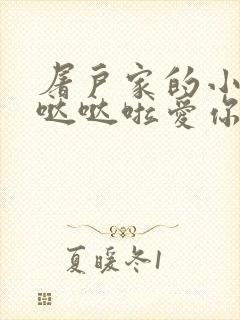 屠户家的小
哒哒啦爱你
夏暖冬1